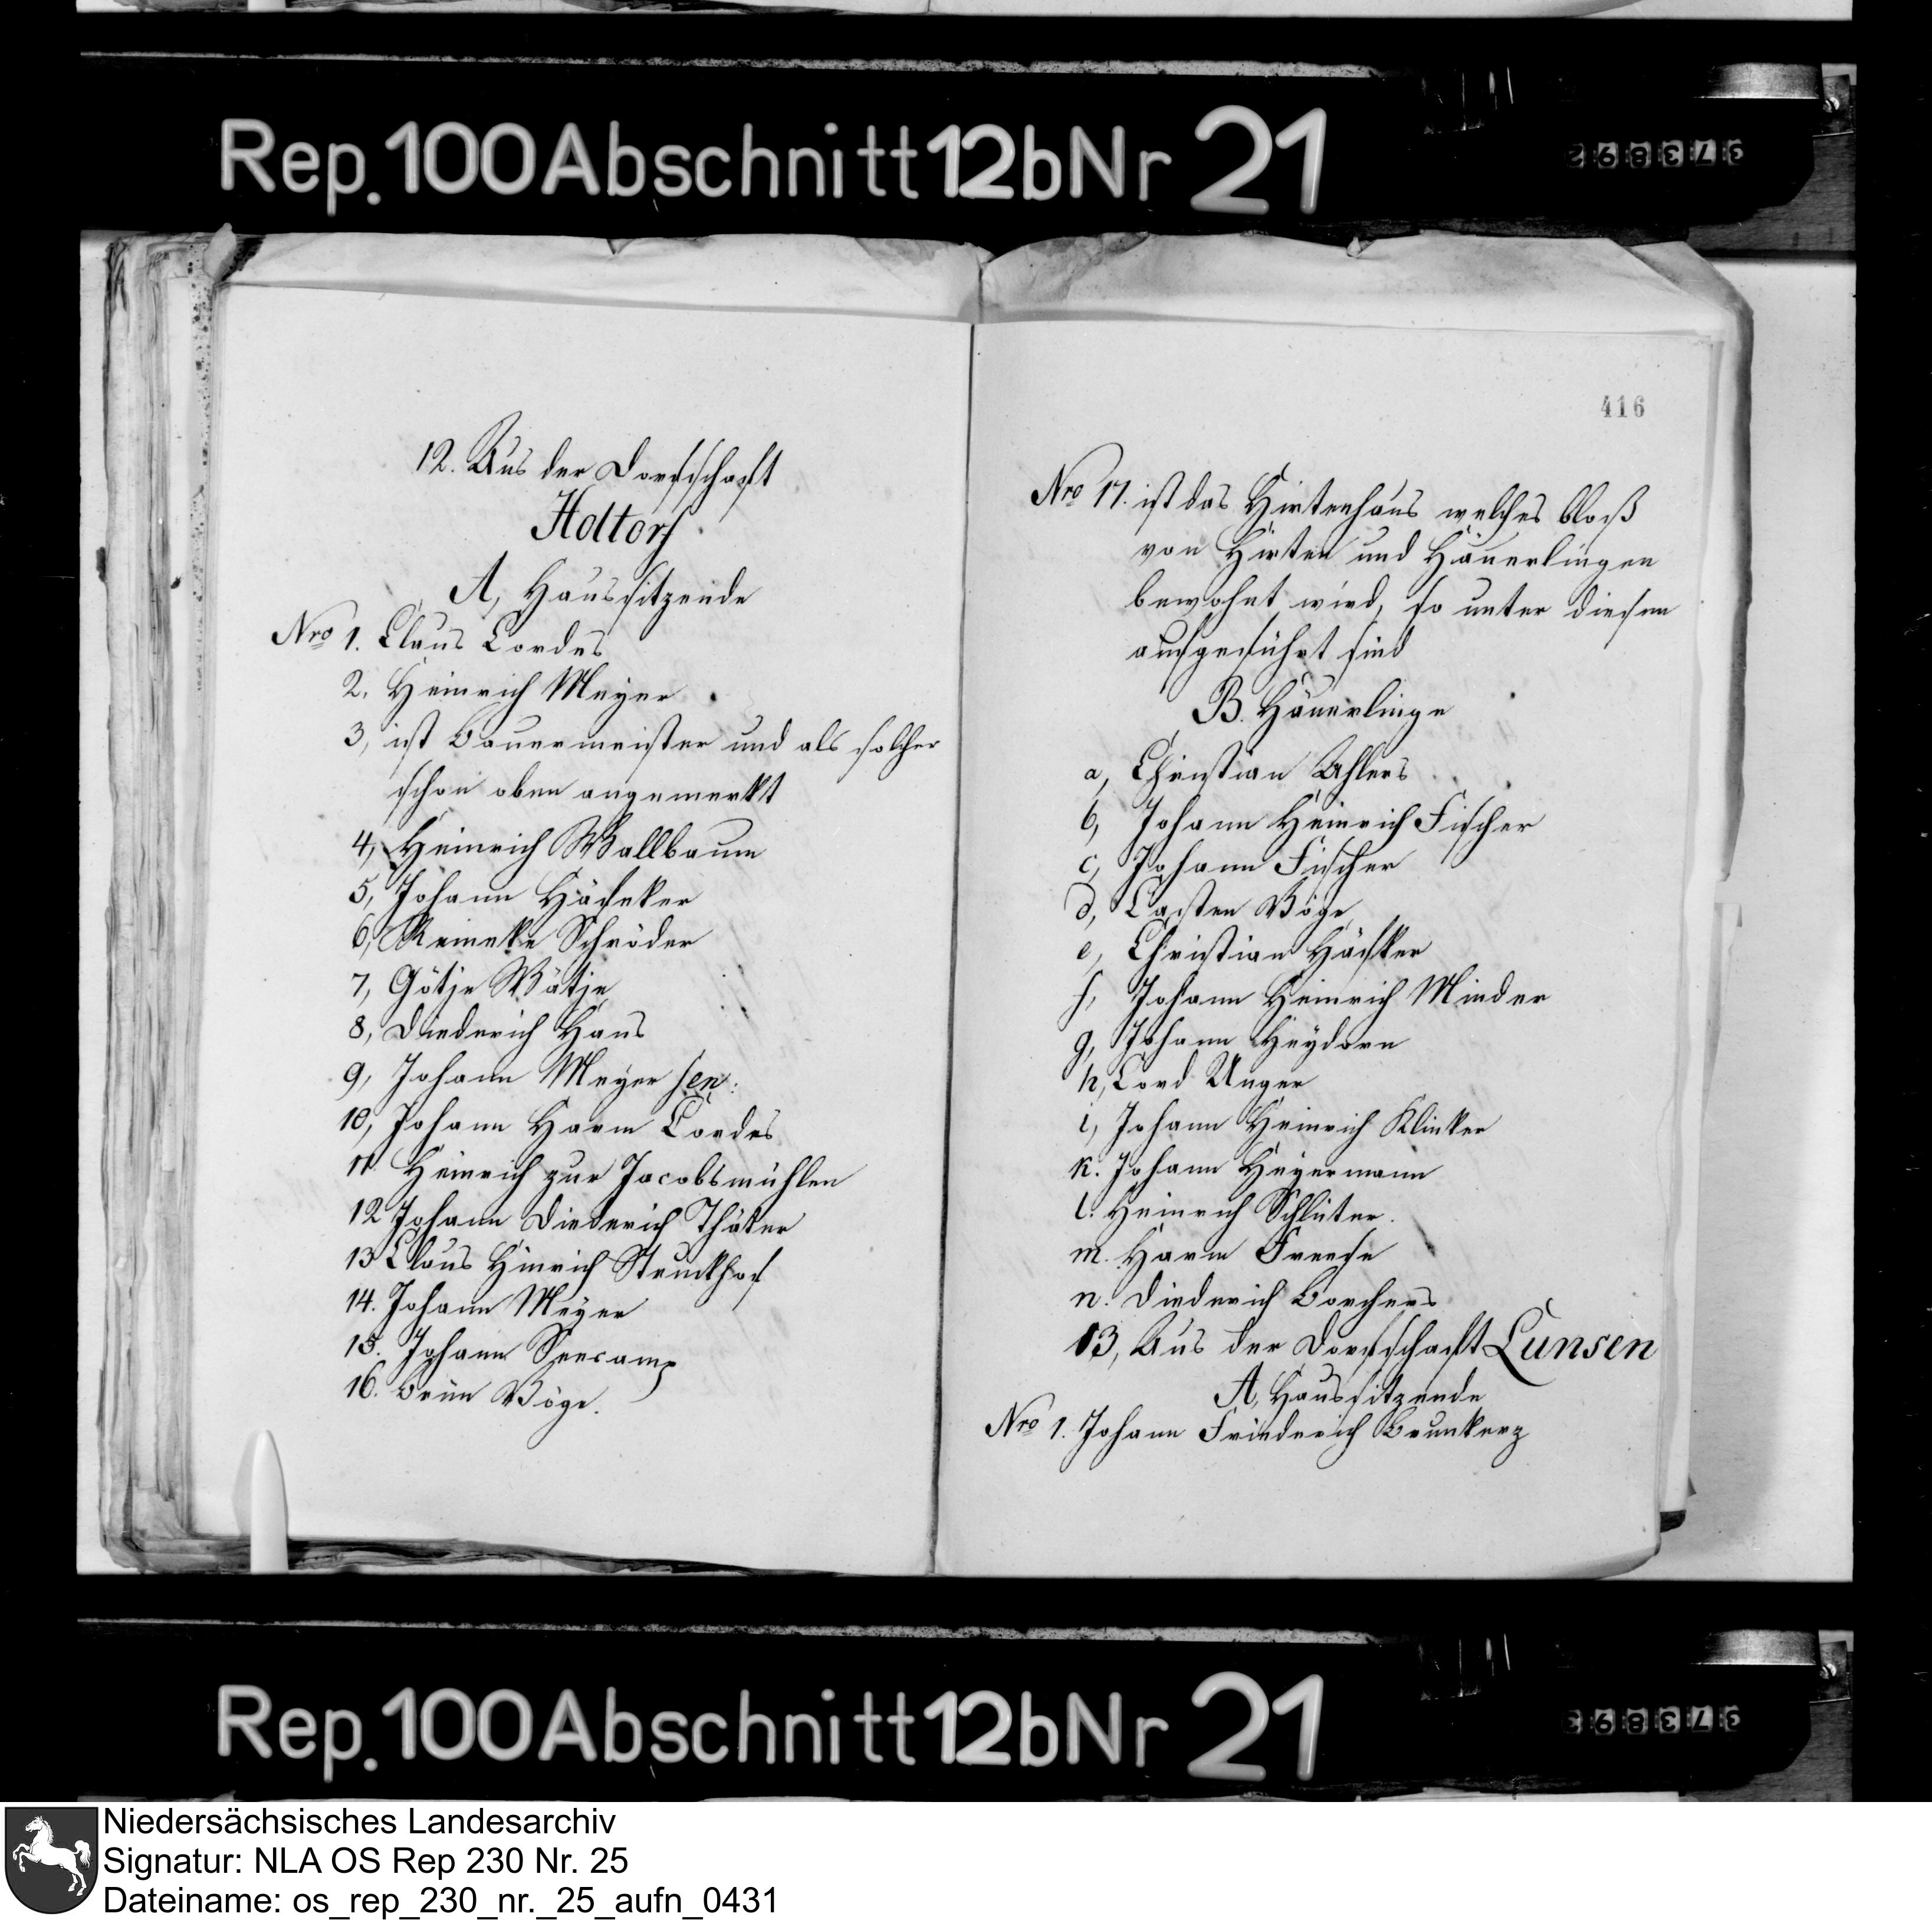 Rep. 100 Abschnitt 12b Nr 21
373892
12. Aus der Dorfschaft
Holtorf
A, Haussitzende
Nro 1. Claus Cordes
2. Heinrich Meyer
3, ist Bauermeister und als solcher
schon oben angemerkt
4, Heinrich Wallbaum
5, Johann Häseker
6, Reineke Schröder
7, Götje Wätje
8, Diederich Haus
9, Johann Meyer sen:
10, Johann Harm Cordes
11. Heinrich zur Jacobsmühlen
12 Johann Diederich Thäter
13 Claus Hinrich Struckhof
14. Johann Meyer
15. Johann Seecamp
16. Brün Böge.
416
Nro 17. ist das Hirtenhaus welches bloß
von Hirten und Häuerlingen
bewohnt wird, so unter diesen
aufgeführt sind
B. Häuerlinge
a, Christian Ahlers
b, Johann Heinrich Fischer
c, Johann Fischer
d, Casten Böge
e, Christian Häsker
f, Johann Heinrich Minder
g, Johann Heydorn
h, Cord Unger
i, Johann Heinrich Klinker
k. Johann Heyermann
l. Heinrich Schlüter.
m. Harm Freese
n. Diederich Borchers
13, Aus der Dorfschaft Lunsen
A, Haussitzende
Nro 1. Johann Friederich Brunkerz
Rep. 100 Abschnitt 12b Nr 21
373893
Niedersächsisches Landesarchiv
Signatur: NLA OS Rep 230 Nr. 25
Dateiname: os_rep_230_nr._25_aufn_0431